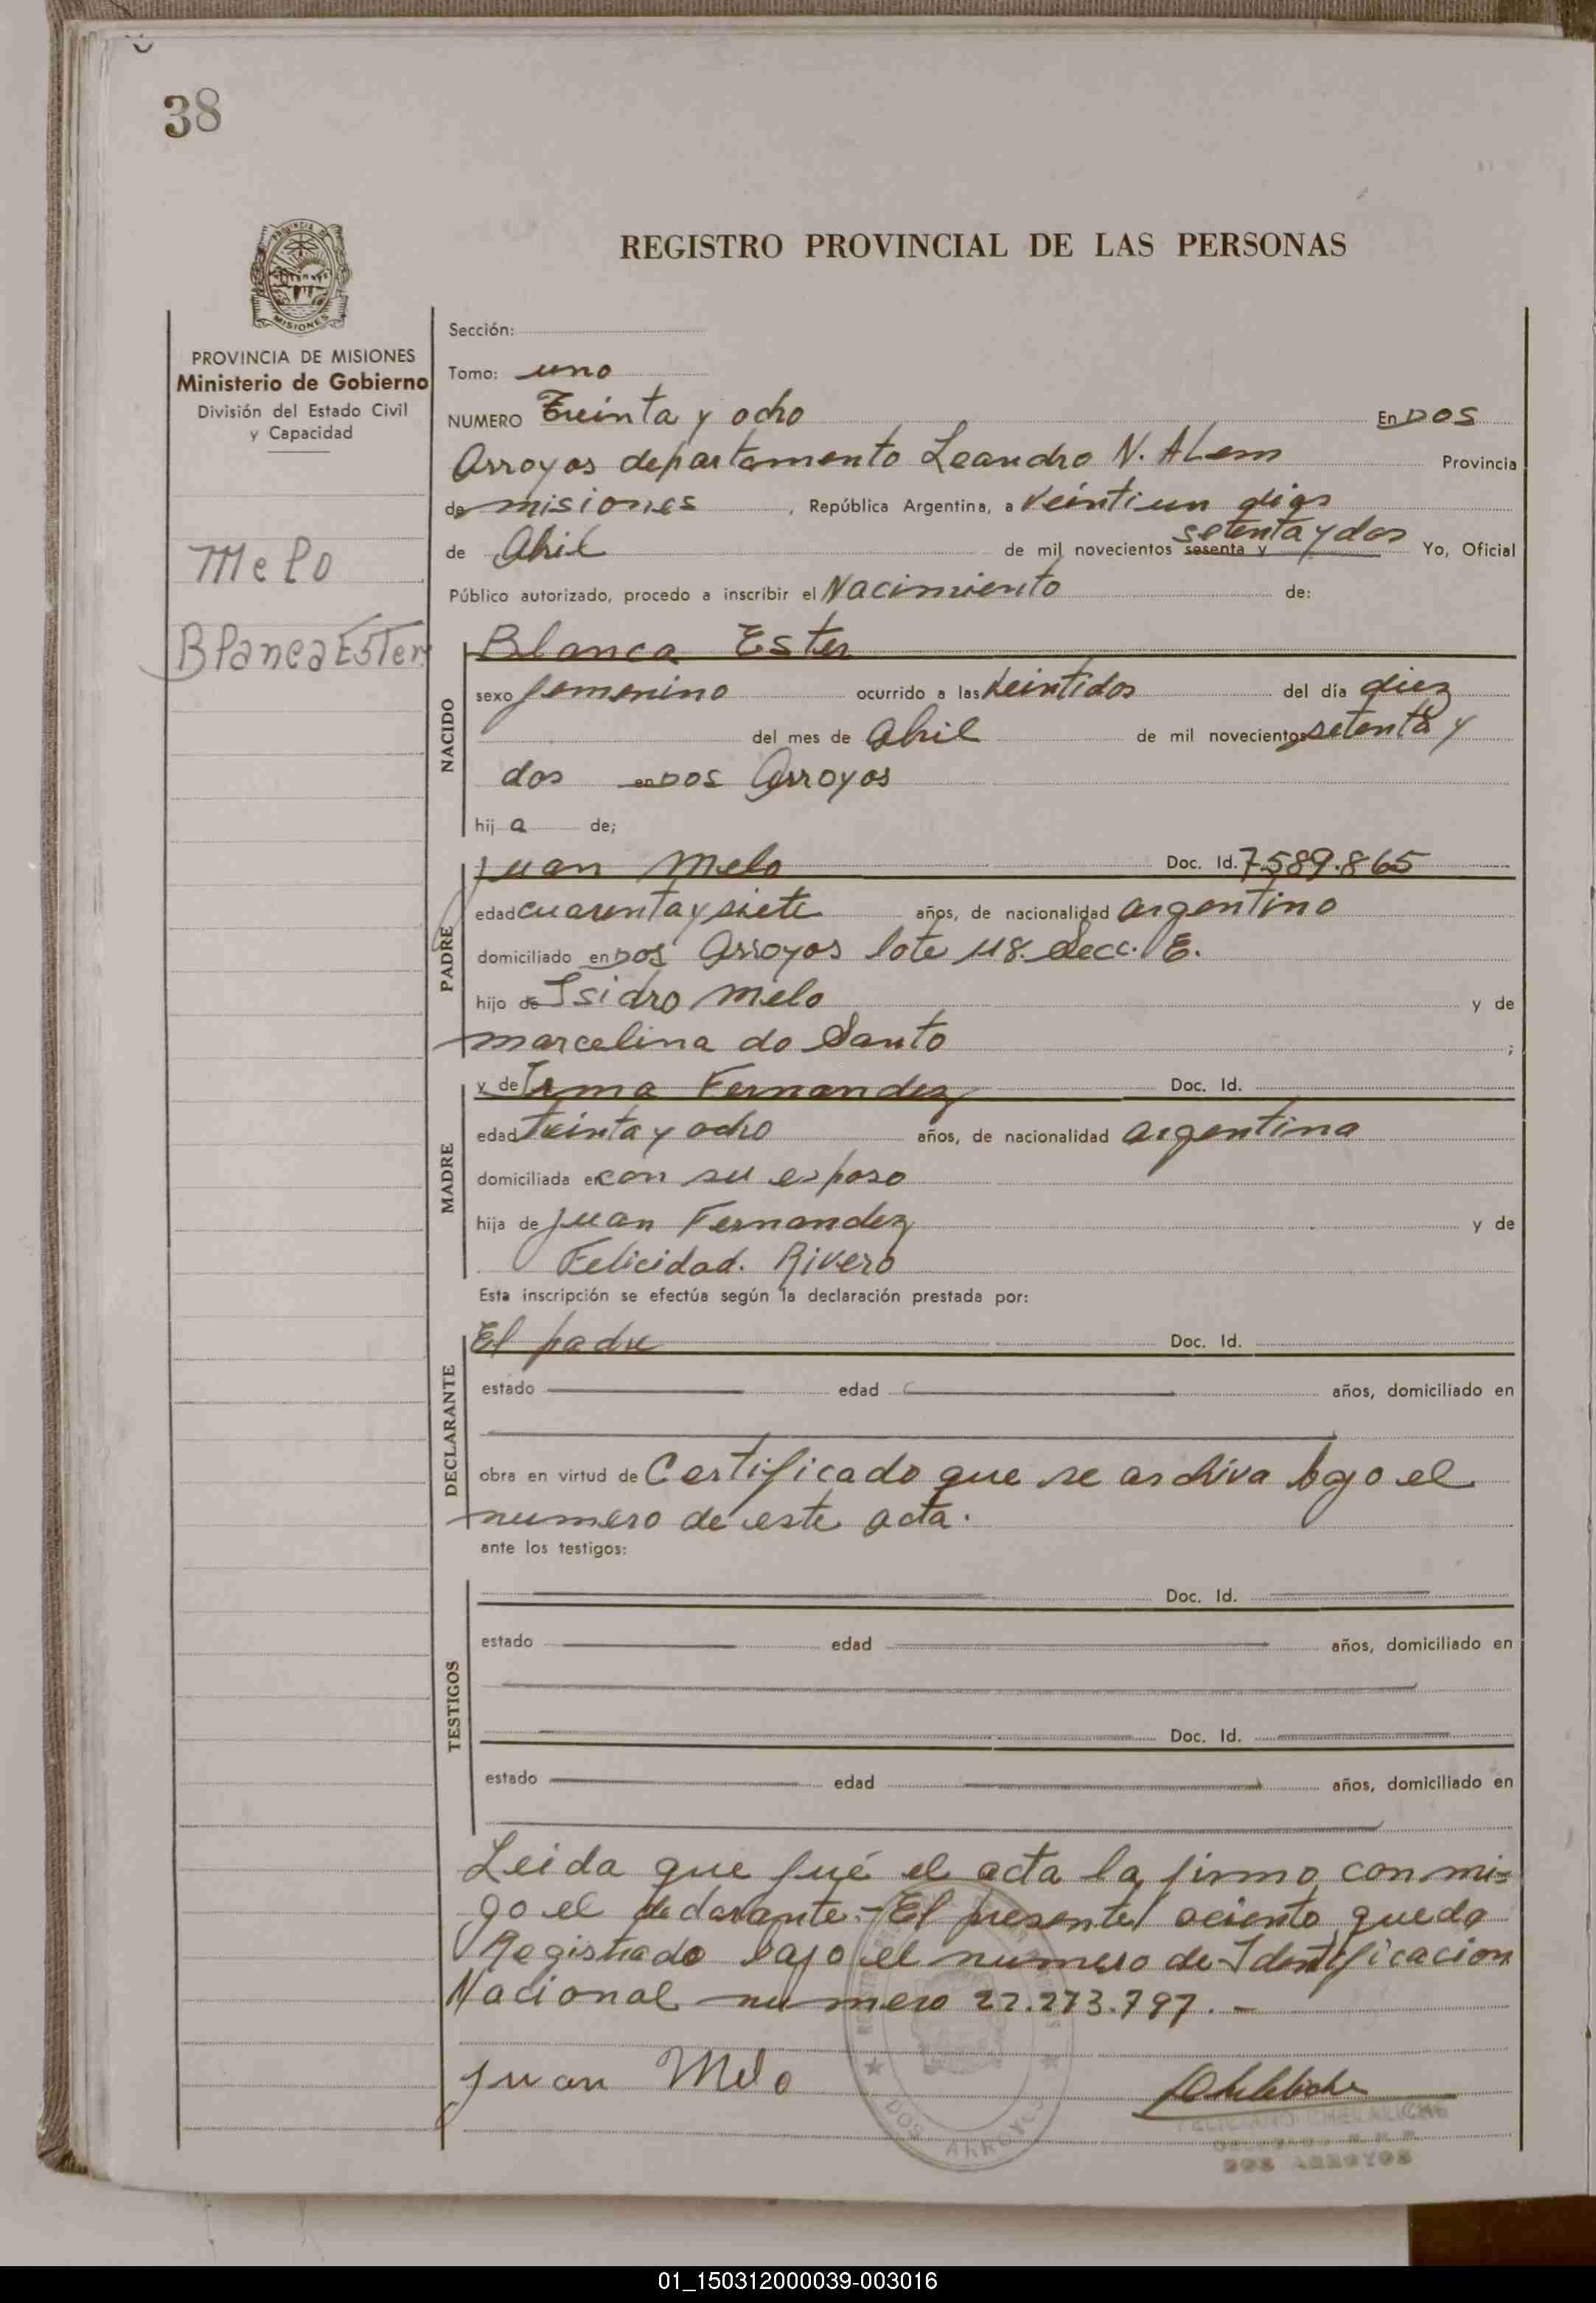 38
REGISTRO PROVINCIAL DE LAS PERSONAS
MISIONES
PROVINCIA DE MISIONES
Ministerio de Gobierno
División del Estado Civil
y Capacidad
Melo
Blanca Ester
Sección:
Tomo: uno
NUMERO Treinta y ocho En Dos
Arroyos departamento Leandro N. ALem Provincia
de misiones, República Argentina, a Veintiun dias
de Abril de mil novecientos sesenta y setenta y dos Yo, Oficial
Público autorizado, procedo a inscribir el Nacimiento de:
NACIDO
Blanca Ester
sexo femenino ocurrido a las veintidos del día diez
del mes de Abril de mil novecientos setenta y
dos en Dos Arroyos
hij a de;
PADRE
Juan Melo Doc. Id. 7.589.865
edad cuarenta y siete años, de nacionalidad argentino
domiciliado en Dos Arroyos lote 118. Secc. E.
hijo de Isidro Melo y de
marcelina do Santo ;
MADRE
y de Irma Fernandez Doc. Id.
edad treinta y ocho años, de nacionalidad argentina
domiciliada en con su esposo
hija de Juan Fernandez y de
Felicidad. Rivero
Esta inscripción se efectúa según la declaración prestada por:
DECLARANTE
El padre Doc. Id.
estado edad años, domiciliado en
obra en virtud de Certificado que se archiva bajo el
numero de este acta.
ante los testigos:
TESTIGOS
Doc. Id.
estado edad años, domiciliado en
Doc. Id.
estado edad años, domiciliado en
Leida que fué el acta la firmo con mi=
go el declarante.- El presente aciento queda
Registrado bajo el numero de Identificacion
Nacional numero 22.273.797. -
Juan Melo
FELICIANO CHELALICHE
DOS ARROYOS
DOS ARROYOS
01_150312000039-003016